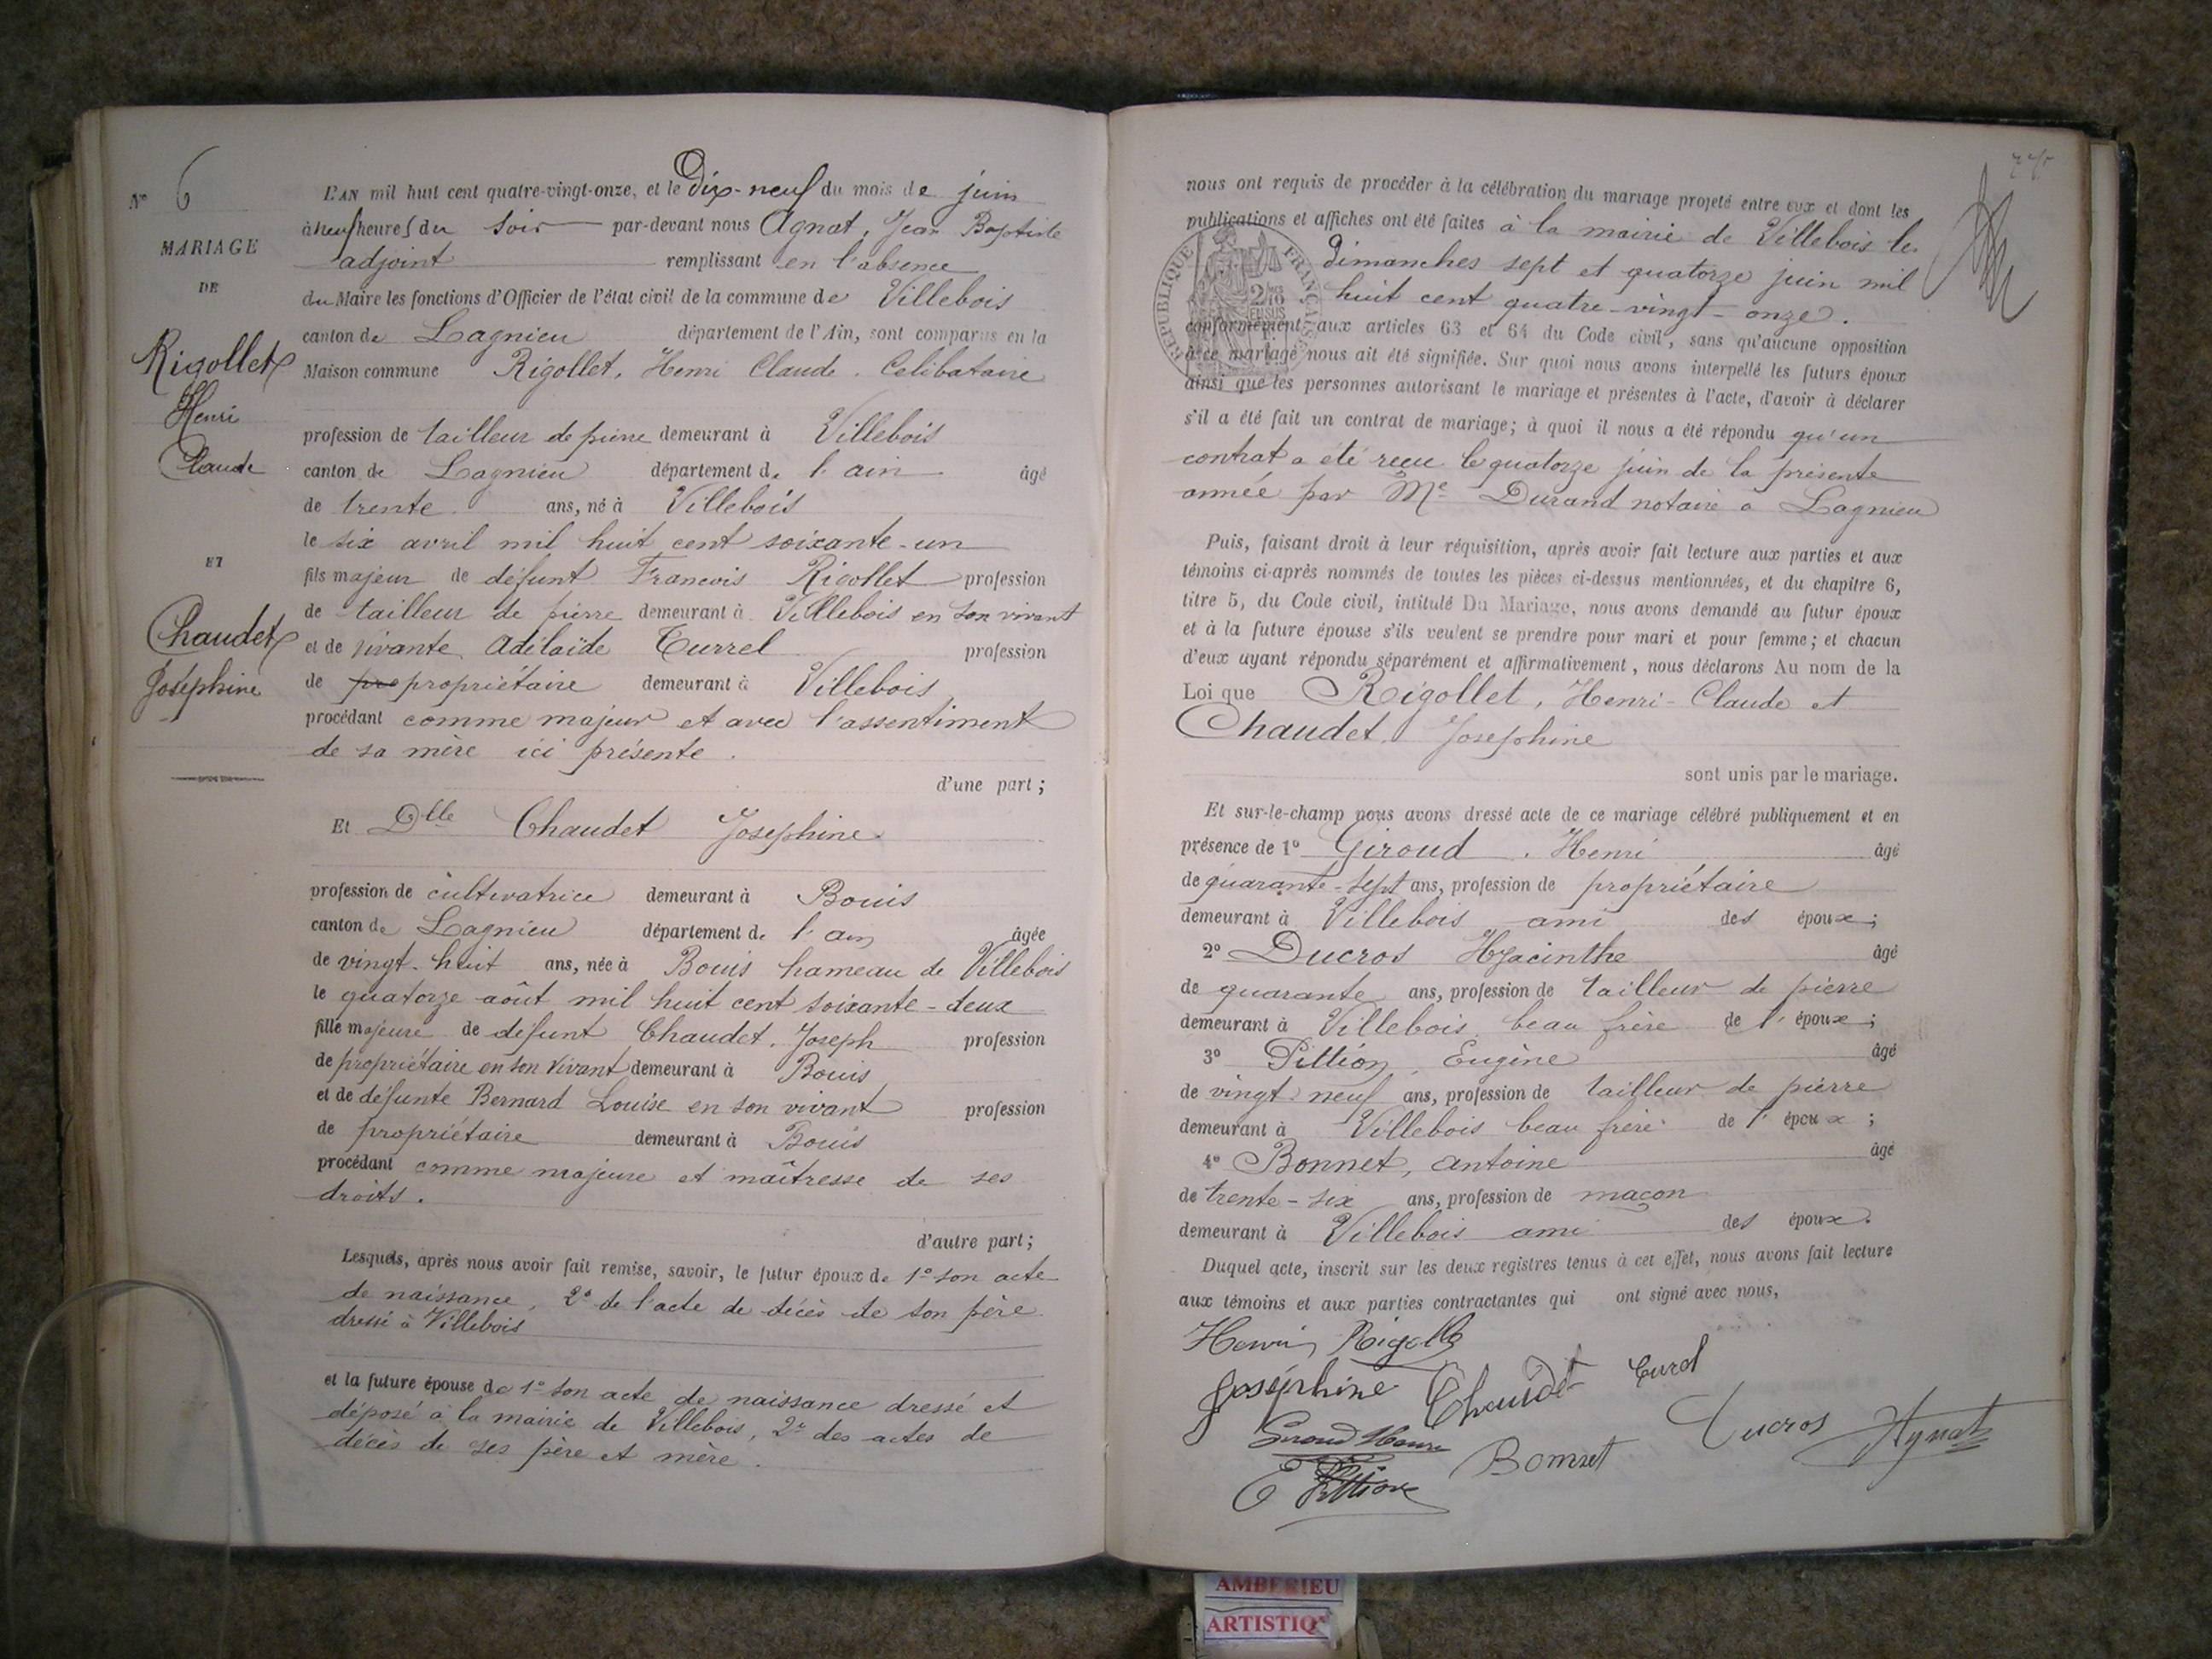 N° 6
MARIAGE
DE
Rigollet
Henri
Claude
ET
Chaudet
Joséphine
L'AN mil huit cent quatre-vingt-onze, et le Dix-neuf du mois de juin
à neuf heures du soir par-devant nous Agnat, Jean Baptiste
adjoint remplissant en l'absence
du Maire les fonctions d'Officier de l'état civil de la commune de Villebois
canton de Lagnieu département de l'Ain, sont comparus en la
Maison commune Rigollet, Henri Claude. Celibataire
profession de tailleur de pierre demeurant à Villebois
canton de Lagnieu département de l'ain âgé
de trente ans, né à Villebois
le six avril mil huit cent soixante-un
fils majeur de défunt Francois Rigollet profession
de tailleur de pierre demeurant à Villebois en son vivant
et de vivante Adélaïde Turrel profession
de pro propriétaire demeurant à Villebois
procédant comme majeur et avec l'assentiment
de sa mère ici présente.
d'une part;
Et Dlle Chaudet Josephine
profession de cultivatrice demeurant à Bouis
canton de Lagnieu département de l'ain âgée
de vingt-huit ans, née à Bouis hameau de Villebois
le quatorze août mil huit cent soixante-deux
fille majeure de defunt Chaudet, Joseph profession
de propriétaire en son vivant demeurant à Bouis
et de défunte Bernard Louise en son vivant profession
de propriétaire demeurant à Bouis
procédant comme majeure et maîtresse de ses
droits.
d'autre part;
Lesquels, après nous avoir fait remise, savoir, le futur époux de 1° son acte
de naissance, 2° de l'acte de décès de son père
dressé à Villebois
et la future épouse de 1° son acte de naissance dressé et
déposé à la mairie de Villebois, 2° des actes de
décès de ses père et mère.
nous ont requis de procéder à la célébration du mariage projeté entre eux et dont les
publications et affiches ont été faites à la mairie de Villebois le
dimanches sept et quatorze juin mil
huit cent quatre-vingt-onze.
RÉPUBLIQUE FRANÇAISE
conformément aux articles 63 et 64 du Code civil, sans qu'aucune opposition
à ce mariage nous ait été signifiée. Sur quoi nous avons interpellé les futurs époux
ainsi que les personnes autorisant le mariage et présentes à l'acte, d'avoir à déclarer
s'il a été fait un contrat de mariage; à quoi il nous a été répondu qu'un
contrat a été recu le quatorze juin de la présente
année par Me Durand notaire à Lagnieu
Puis, faisant droit à leur réquisition, après avoir fait lecture aux parties et aux
témoins ci-après nommés de toutes les pièces ci-dessus mentionnées, et du chapitre 6,
titre 5, du Code civil, intitulé Du Mariage, nous avons demandé au futur époux
et à la future épouse s'ils veulent se prendre pour mari et pour femme; et chacun
d'eux ayant répondu séparément et affirmativement, nous déclarons Au nom de la
Loi que Rigollet, Henri-Claude et
Chaudet Josephine
sont unis par le mariage.
Et sur-le-champ nous avons dressé acte de ce mariage célébré publiquement et en
présence de 1° Giroud, Henri âgé
de quarante-sept ans, profession de propriétaire
demeurant à Villebois ami des époux;
2° Ducros Hyacinthe âgé
de quarante ans, profession de tailleur de pierre
demeurant à Villebois beau frère de l'époux;
3° Pittion, Eugène âgé
de vingt neuf ans, profession de tailleur de pierre
demeurant à Villebois beau frère de l'époux;
4° Bonnet, Antoine âgé
de trente-six ans, profession de maçon
demeurant à Villebois ami des époux.
Duquel acte, inscrit sur les deux registres tenus à cet effet, nous avons fait lecture
aux témoins et aux parties contractantes qui ont signé avec nous,
Henri Rigollet
Joséphine Chaudet Turel
Giroud Henri Bonnet Ducros Agnat
E Pittion
AMBERIEU
ARTISTIQ